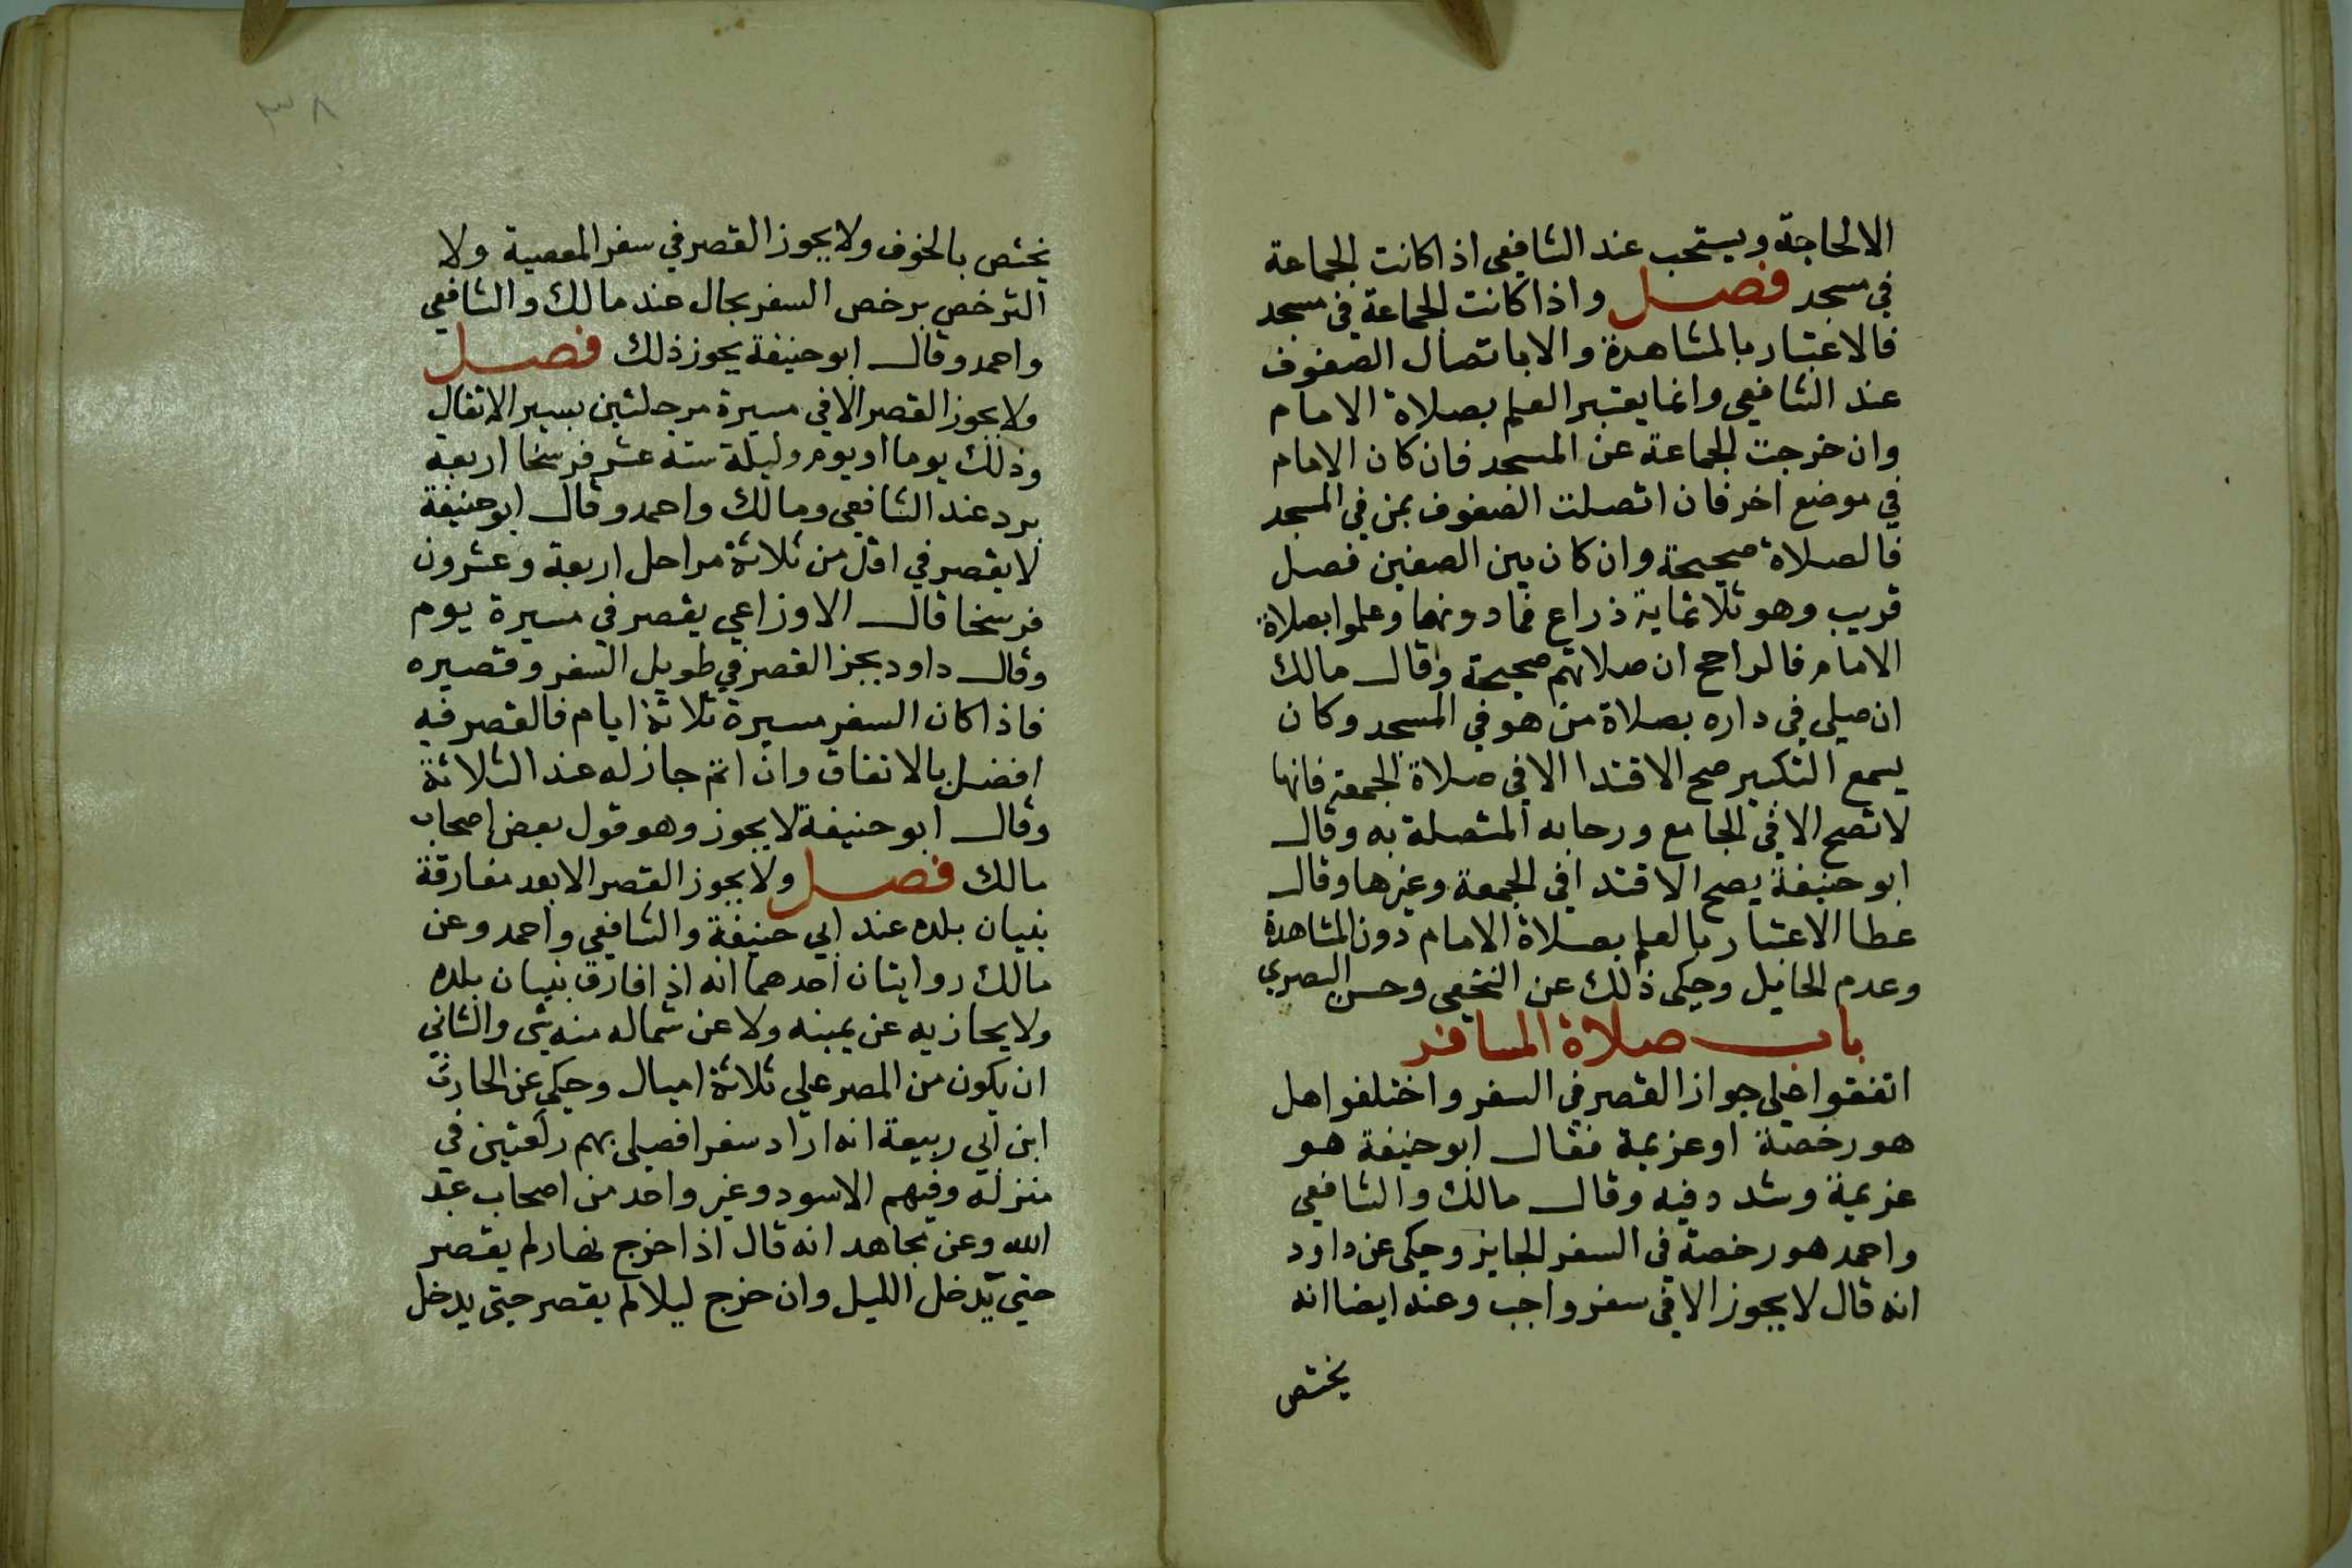 الا لحاجة ويستحب عند الشافعي اذا كانت الجماعة
في مسجد فصل واذا كانت الجماعة في مسجد
فالاعتبار بالمشاهدة والا باتصال الصفوف
عند الشافعي وانما يعتبر العلم بصلاة الامام
وان خرجت الجماعة عن المسجد فان كان الامام
في موضع اخر فان اتصلت الصفوف بمن في المسجد
فالصلاة صحيحة وان كان بين الصفين فصل
قريب وهو ثلاثماية ذراع فما دونها وعلموا بصلاة
الامام فالراجح ان صلاتهم صحيحة وقال مالك
ان صلي في داره بصلاة من هو في المسجد وكان
يسمع التكبير صح الاقتدا الا في صلاة الجمعة فانها
لا تصح الا في الجامع ورحابه المتصلة به وقال
ابو حنيفة يصح الاقتدا في الجمعة وغيرها وقال
عطا الاعتبار بالعلم بصلاة الامام دون المشاهدة
وعدم الحايل وحكى ذلك عن النخعي وحسن البصري
باب صلاة المسافر
اتفقوا على جواز القصر في السفر واختلفوا هل
هو رخصة او عزيمة فقال ابو حنيفة هو
عزيمة وشدد فيه وقال مالك والشافعي
واحمد هو رخصة في السفر الجايز وحكى عن داود
انه قال لا يجوز الا في سفر واجب وعنه ايضا انه
يختص
٣٨
يختص بالخوف ولا يجوز القصر في سفر المعصية ولا
الترخص برخص السفر بحال عند مالك والشافعي
واحمد وقال ابو حنيفة يجوز ذلك فصل
ولا يجوز القصر الا في مسيرة مرحلتين بسير الاثقال
وذلك يوما او يوم وليلة ستة عشر فرسخا اربعة
برد عند الشافعي ومالك واحمد وقال ابو حنيفة
لا يقصر في اقل من ثلاثة مراحل اربعة وعشرون
فرسخا قال الاوزاعي يقصر في مسيرة يوم
وقال داود يجز القصر في طويل السفر وقصيره
فاذا كان السفر مسيرة ثلاثة ايام فالقصر فيه
افضل بالاتفاق وان اتم جاز له عند الثلاثة
وقال ابو حنيفة لا يجوز وهو قول بعض اصحاب
مالك فصل ولا يجوز القصر الا بعد مفارقة
بنيان بلده عند ابي حنيفة والشافعي واحمد وعن
مالك روايتان احدهما انه اذا فارق بنيان بلده
ولا يحازيه عن يمينه ولا عن شماله منه شي والثاني
ان يكون من المصر علي ثلاثة اميال وحكي عن الحارث
ابن ابي ربيعة انه اراد سفرا فصلى بهم ركعتين في
منزله وفيهم الاسود وغير واحد من اصحاب عبد
الله وعن مجاهد انه قال اذا خرج نهارا لم يقصر
حتي يدخل الليل وان خرج ليلا لم يقصر حتى يدخل